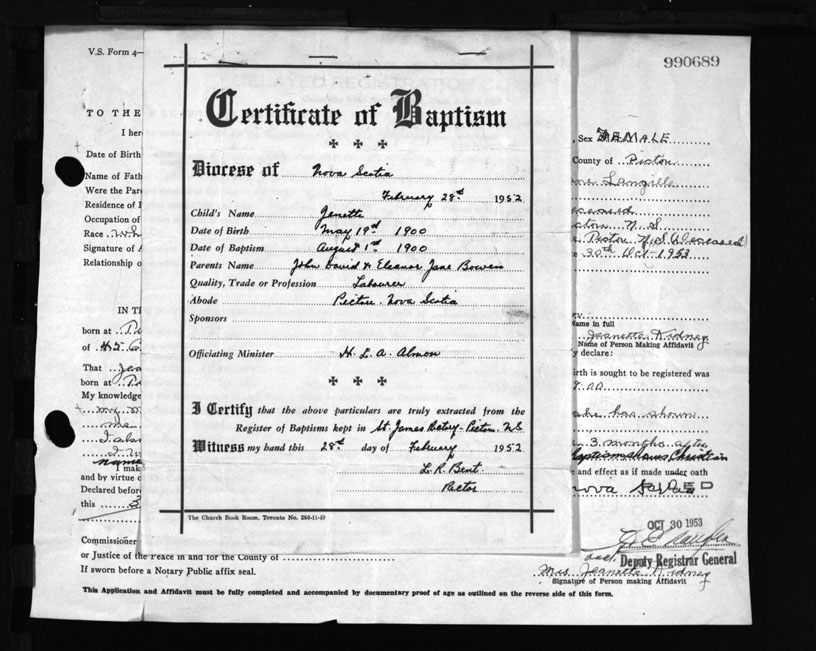 V.S. Form 4—
990689
Certificate of Baptism
Diocese of Nova Scotia
February 28th 1952
Child's Name Jenette
Date of Birth May 19th 1900
Date of Baptism August 1st 1900
Parents Name John David & Eleanor Jane Bowen
Quality, Trade or Profession Labourer
Abode Pictou, Nova Scotia
Sponsors
Officiating Minister H. L. A. Almon
I Certify that the above particulars are truly extracted from the
Register of Baptisms kept in St. James Pictou, N.S
Witness my hand this 28th day of February 1952
L. R. Bent
Rector
The Church Book Room, Toronto No. 260-11-49
TO THE
I her
Date of Birth
Name of Fath
Were the Par
Residence of
Occupation of
Race wh
Signature of A
Relationship o
IN TH
born at
of
That Jea
born at
My knowledge
my m
me
I als
name
I mak
and by virtue o
Declared before
this 3
Commissioner
or Justice of the Peace in and for the County of
If sworn before a Notary Public affix seal.
Sex FEMALE
County of Pictou
Langille
eceased
ctou N.S.
Pictou N.S. (Deceased)
30th Oct. 1953
Name in full
Jeanette Kidney
Name of Person Making Affidavit
y declare:
irth is sought to be registered was
she has shown
3 months after
Baptism shows Christian
and effect as if made under oath
Nova Scotia
OCT 30 1953
Deputy Registrar General
Mrs. Jeanette Kidney
Signature of Person making Affidavit
This Application and Affidavit must be fully completed and accompanied by documentary proof of age as outlined on the reverse side of this form.